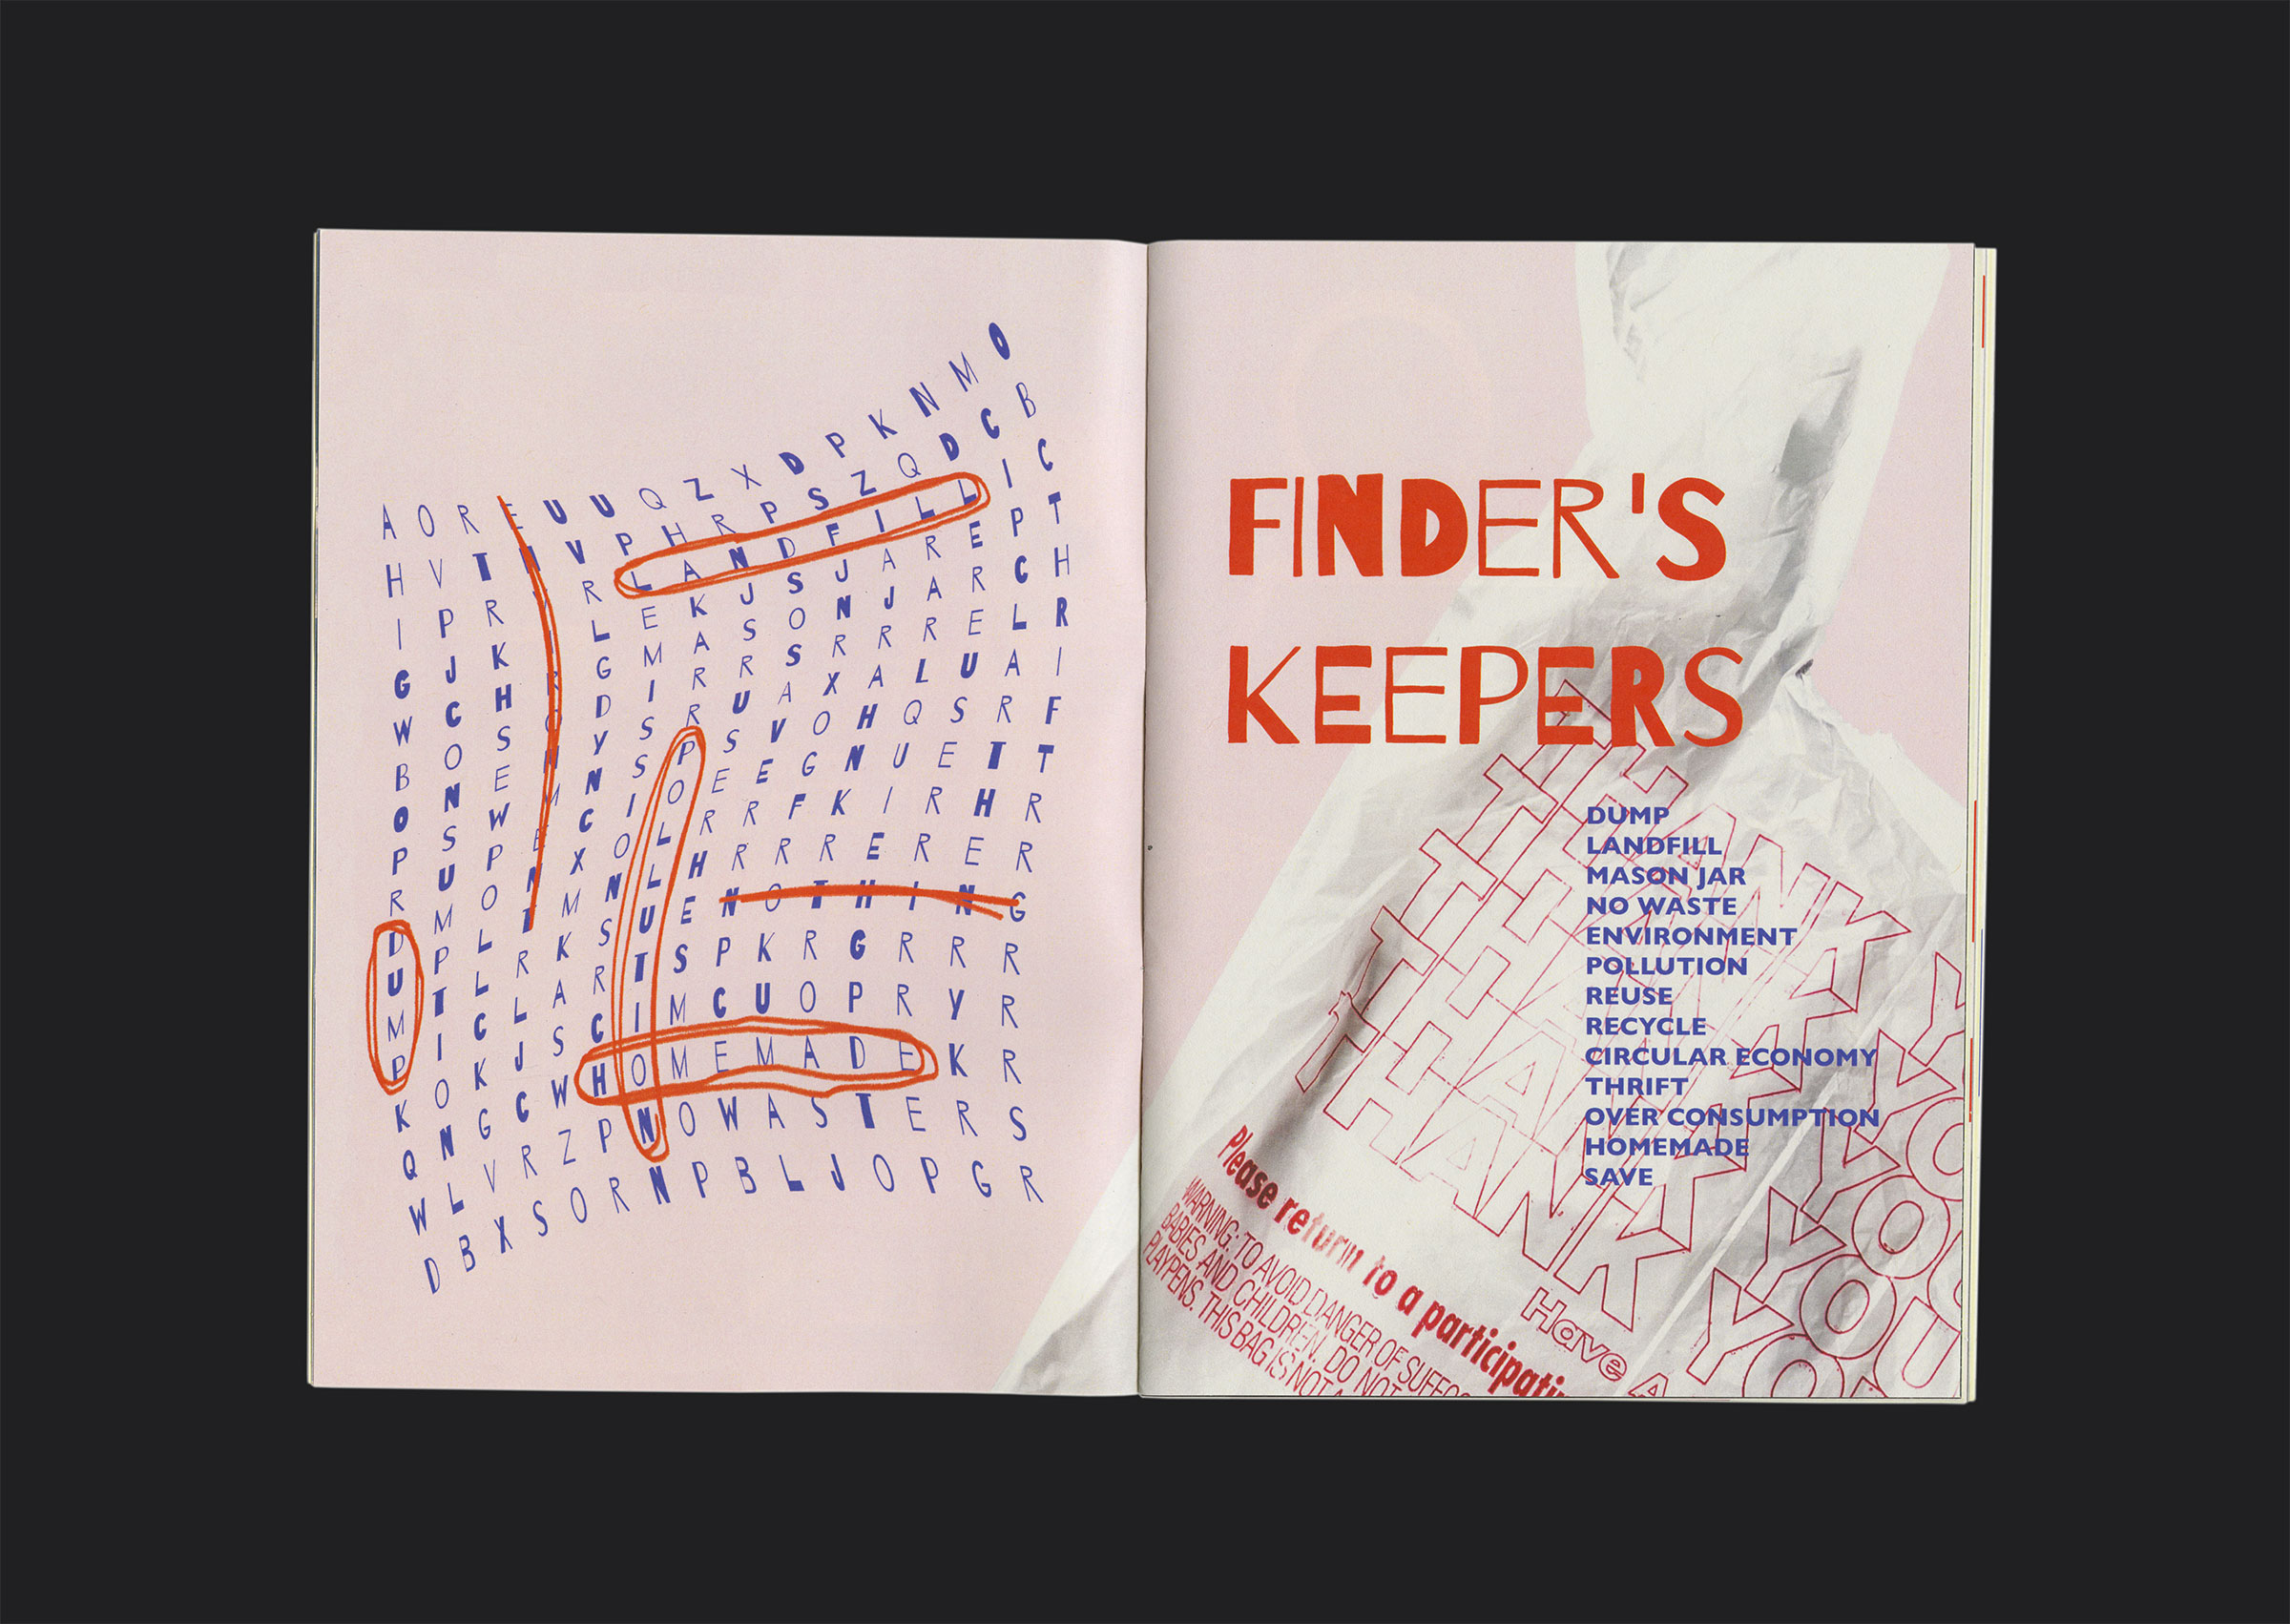 A O R E U U Q Z X D P K N M O
H V T N V P H R P S Z Q D C B
I P R V R L A N D F I L L I C
G J K I L E K J S J A R E P T
W C H R G M A S O N J A R C H
B O S O D I R R S R R R E L R
O N E N Y S R U A X A L U A I
P S W M N S P S V O H Q S R F
R U P E C I O E E G N U E T T
D M O N X O L R R F K I R H R
U P L T M N L H R R R E R E R
M T L R K S U E N O T H I N G
P I C L A R T S P K R G R R R
K O K J S C I M C U O P R Y R
Q N G C W H O M E M A D E K R
W L V R Z P N O W A S T E R S
D B X S O R N P B L J O P G R
FINDER'S
KEEPERS
DUMP
LANDFILL
MASON JAR
NO WASTE
ENVIRONMENT
POLLUTION
REUSE
RECYCLE
CIRCULAR ECONOMY
THRIFT
OVER CONSUMPTION
HOMEMADE
SAVE
THANK YOU
THANK YOU
THANK YOU
THANK YOU
Have A
Please return to a participatin
WARNING: TO AVOID DANGER OF SUFFOC
BABIES AND CHILDREN. DO NOT
PLAYPENS. THIS BAG IS NOT A